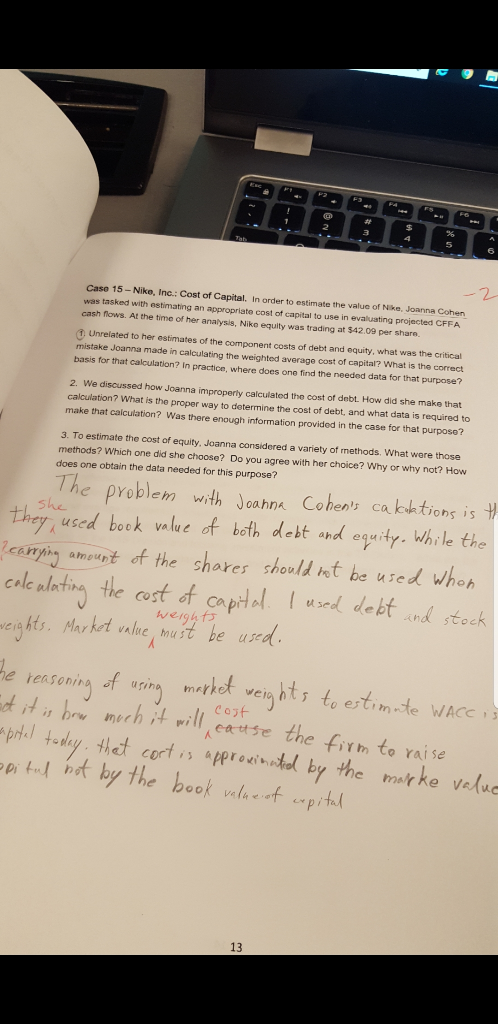 Esc F1 F2 F3 F4 F5 F6
~ ! @ # $ % ^
` 1 2 3 4 5 6
Tab
-2
Case 15 – Nike, Inc.: Cost of Capital. In order to estimate the value of Nike, Joanna Cohen
was tasked with estimating an appropriate cost of capital to use in evaluating projected CFFA
cash flows. At the time of her analysis, Nike equity was trading at $42.09 per share.
1. Unrelated to her estimates of the component costs of debt and equity, what was the critical
mistake Joanna made in calculating the weighted average cost of capital? What is the correct
basis for that calculation? In practice, where does one find the needed data for that purpose?
2. We discussed how Joanna improperly calculated the cost of debt. How did she make that
calculation? What is the proper way to determine the cost of debt, and what data is required to
make that calculation? Was there enough information provided in the case for that purpose?
3. To estimate the cost of equity, Joanna considered a variety of methods. What were those
methods? Which one did she choose? Do you agree with her choice? Why or why not? How
does one obtain the data needed for this purpose?
The problem with Joanna Cohen's is th
she
they used book value of both debt and equity. While the
? carrying amount of the shares should not be used when
calculating the cost of capital. I used debt and stock
weights
weights. Market value must be used.
he reasoning of using market weights to estimate WACC is
cost
at it is how much it will cause the firm to raise
apital today. that cort is approximated by the marke value
pital not by the book value of capital
13